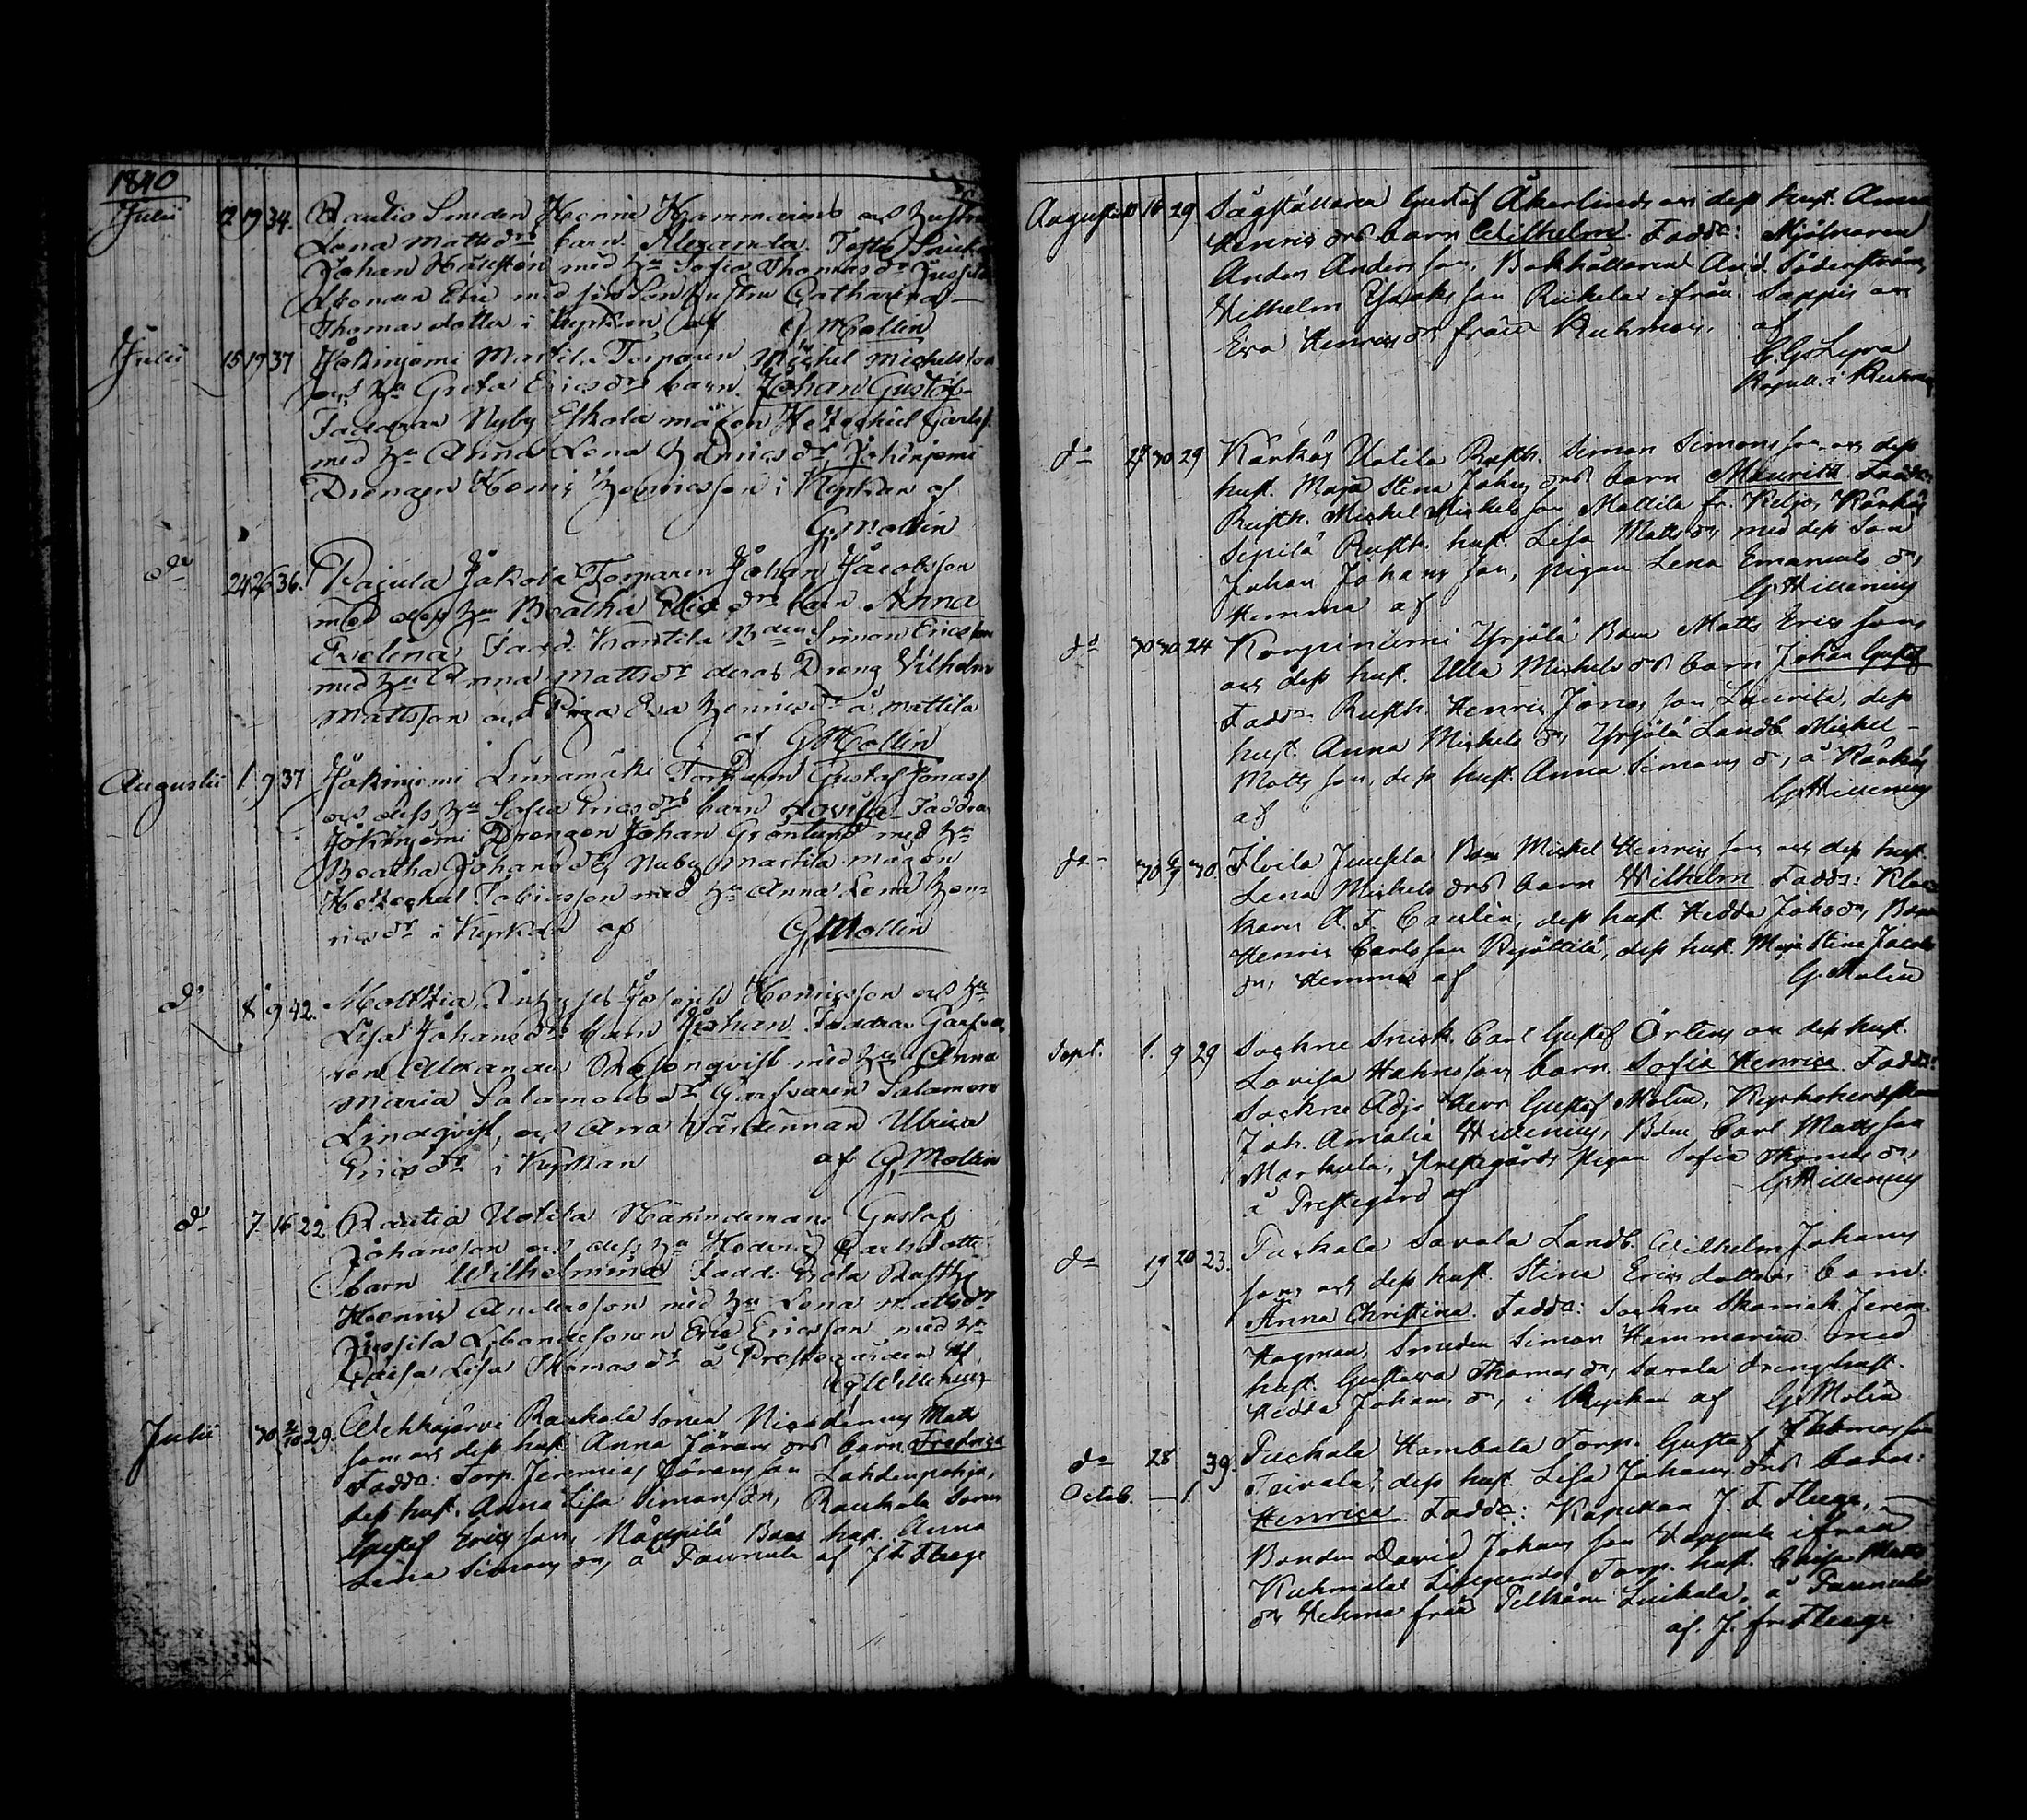 1840
Julii 12 19 34. Rautio Smeden Henric Hammarins och Hustru
Lena Mattsdrs barn Alexander Test:
Johan Hällsten med Hu Sofia Thomasdr Jussila
Ebonden Eric med Hustru Catharina
Thomasdotter i Kyrkan af G Mollin
Julii 15 19 37 Jokinjemi Martila Torparen Michel Michelsson
och Hu Greta Ericsdrs barn. Johan Gustaf
Faddrar Nyby Eskola mågen Hezechiel Carlss.
med Hu Anna Lena Henricsdr Jokinjemi
Drengen Henric Henricsson i Kyrkan af
G, Mollin
do 24 26 36. Rajula Jakola Torparen Johan Jacobsson
med dess Hu Beatha Ericsdrs barn Anna
Evelina, Fadd. Simon Ericsson
med Hu Anna Mattsdr deras Dreng Vilhelm
Mattsson och Piga Eva Henricsdr å Mattila
af G Mollin
Augustii 1 9 37 Jokinjemi Linnamäki Torparen Gustaf Jonass.
och dess Hu Sofia Ericsdrs barn Lovisa Faddrar
Jokinjemi Drengen Johan Grönlund med Hu
Beatha Johansdr, Nyby Martila mågen
Hezechiel Tobiasson med Hu Anna Lena Hen-
ricsdr i Kyrkan af G, Mollin
do 8 9 42. Inhyses Joseph Henricsson och Hu
Lisa Johansdrs barn Johan Faddrar Garfva-
ren Alexander Rosenqvist med Hu Anna
Maria Salamonsdr Garfvaren Salamon
Lindqvist, och Ulrica
Ericsdr i Kyrkan af G, Mollin
do 7 16 22 Rautia Uotila Gustaf
Johansson och dess Hu Hedvig Carlsdotte
barn Wilhelmina Fadd: Rusth.
Henric Andersson med Hu Lena Mattsdr
Jussila Ebondesonen Eric Ericsson med Hu
Lisa Thomasdr å Prestegården af
G Willenius
Julii 30 2/10 29. Wehkajärvi Raukola Sonen Nicodemus Matts
son och dess hust. Anna Jöransdrs barn Fredrica
Fadda: Torp. Jeremias Göransson Lahdenpohja,
dess hust. Anna Lisa Simonsdr, Raukola Sonen
Gustaf Ericsson, Näppilä Bons hust. Anna
Lena Simonsdr, å Paunula af J F Fleege
Augusti 10 16 29. Sågställaren Gustaf Åkerlinds och dess hust. Anna
Henricsdrs barn Wilhelm. Fadda: Mjölnaren
Anders Andersson, Bokhållaren And. Söderström,
Wilhelm Isaksson Rickala ifrån Sappee och
Eva Henricsdr från Kuhmois. af
C. G. Lyra
Kapell. i Kuhmois
do 27 30 29 Kärkäs Uotila Rusth. Simon Simonsson och dess
hust. Maja Stina Johansdrs barn Mauritz Fadda:
Rusth. Michel Michelsson Mattila fr. Keljo, Kärkäs
Sepilä Rusth. hust. Lisa Mattsdr, med dess Son
Johan Johansson, pigan Lena Emanuelsdr,
Hemma af G Willenius
do 30 30 24 Korpiniemi Yrjölä Bon Matts Ericssons
och dess hust. Ulla Michelsdrs barn Johan Gustaf
Fadda: Rusth. Henric Jonasson Laurila, dess
hust. Anna Michelsdr, Yrjölä Landb. Michel
Mattsson, dess hust. Anna Simonsdr, å Kärkäs
af G Willenius
do 30 9/9 30. Flvila Juusela Bon Michel Henricsson och dess hust.
Lena Michelsdrs barn Wilhelm Fadda: Kloc-
karen A. F. Caulin, dess hust. Hedda Johsdr, Bon
Henric Carlsson Kyöttilä, dess hust. Maja Stina Jacobs
dr, Hemma af G. Molin
Sept. 1. 9 29 Sockne Snick. Carl Gustaf Örtens och dess hust.
Lovisa Hahnsson barn Sofia Henrica Fadda:
Sockne Adj. Herr Gustaf Molin, Kyrkoherdskan
Joh. Amalia Willenius, Bon Carl Mattsson
Markula, Prestgårds pigan Sofia Thomasdr,
å Prestegård af G Willenius
do 19 20 23. Puckala Savala Landb. Wilhelm Johans
sons och dess hust. Stina Ericsdotters barn:
Anna Christina. Fadda: Sockne Skomak. Jerem.
Hagman, Smeden Simon Hammarin med
hust. Gustava Thomasdr, Savala drengs hust.
Hedda Johansdr, i Kyrkan af G. Molin
do 28 39. Puckala Kambala Torp. Gustaf Thomasson
Octob. 1. Toivala, dess hust. Lisa Johansdrs barn:
Henrica Fadda: Kapellan J F Fleege,
Bonden David Johansson ifrån
Kuhmalax Torp. hust. Caisa Matts
dr Wehma från Pelkäne Luikala, å Paunula
af. J. Fr. Fleege